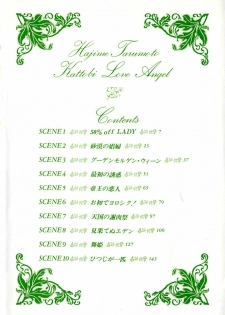 Hajime Tarumoto
Kattobi Love Angel
Contents
SCENE1 50% off LADY 7
SCENE2 砂漠の娼婦 15
SCENE3 グーテンモルゲン・ウィーン 37
SCENE4 最初の誘惑 51
SCENE5 帝王の恋人 65
SCENE6 お初でヨロシク! 79
SCENE7 天国の謝肉祭 97
SCENE8 見果てぬエデン 109
SCENE9 舞姫 127
SCENE10 ひつじが一匹 143